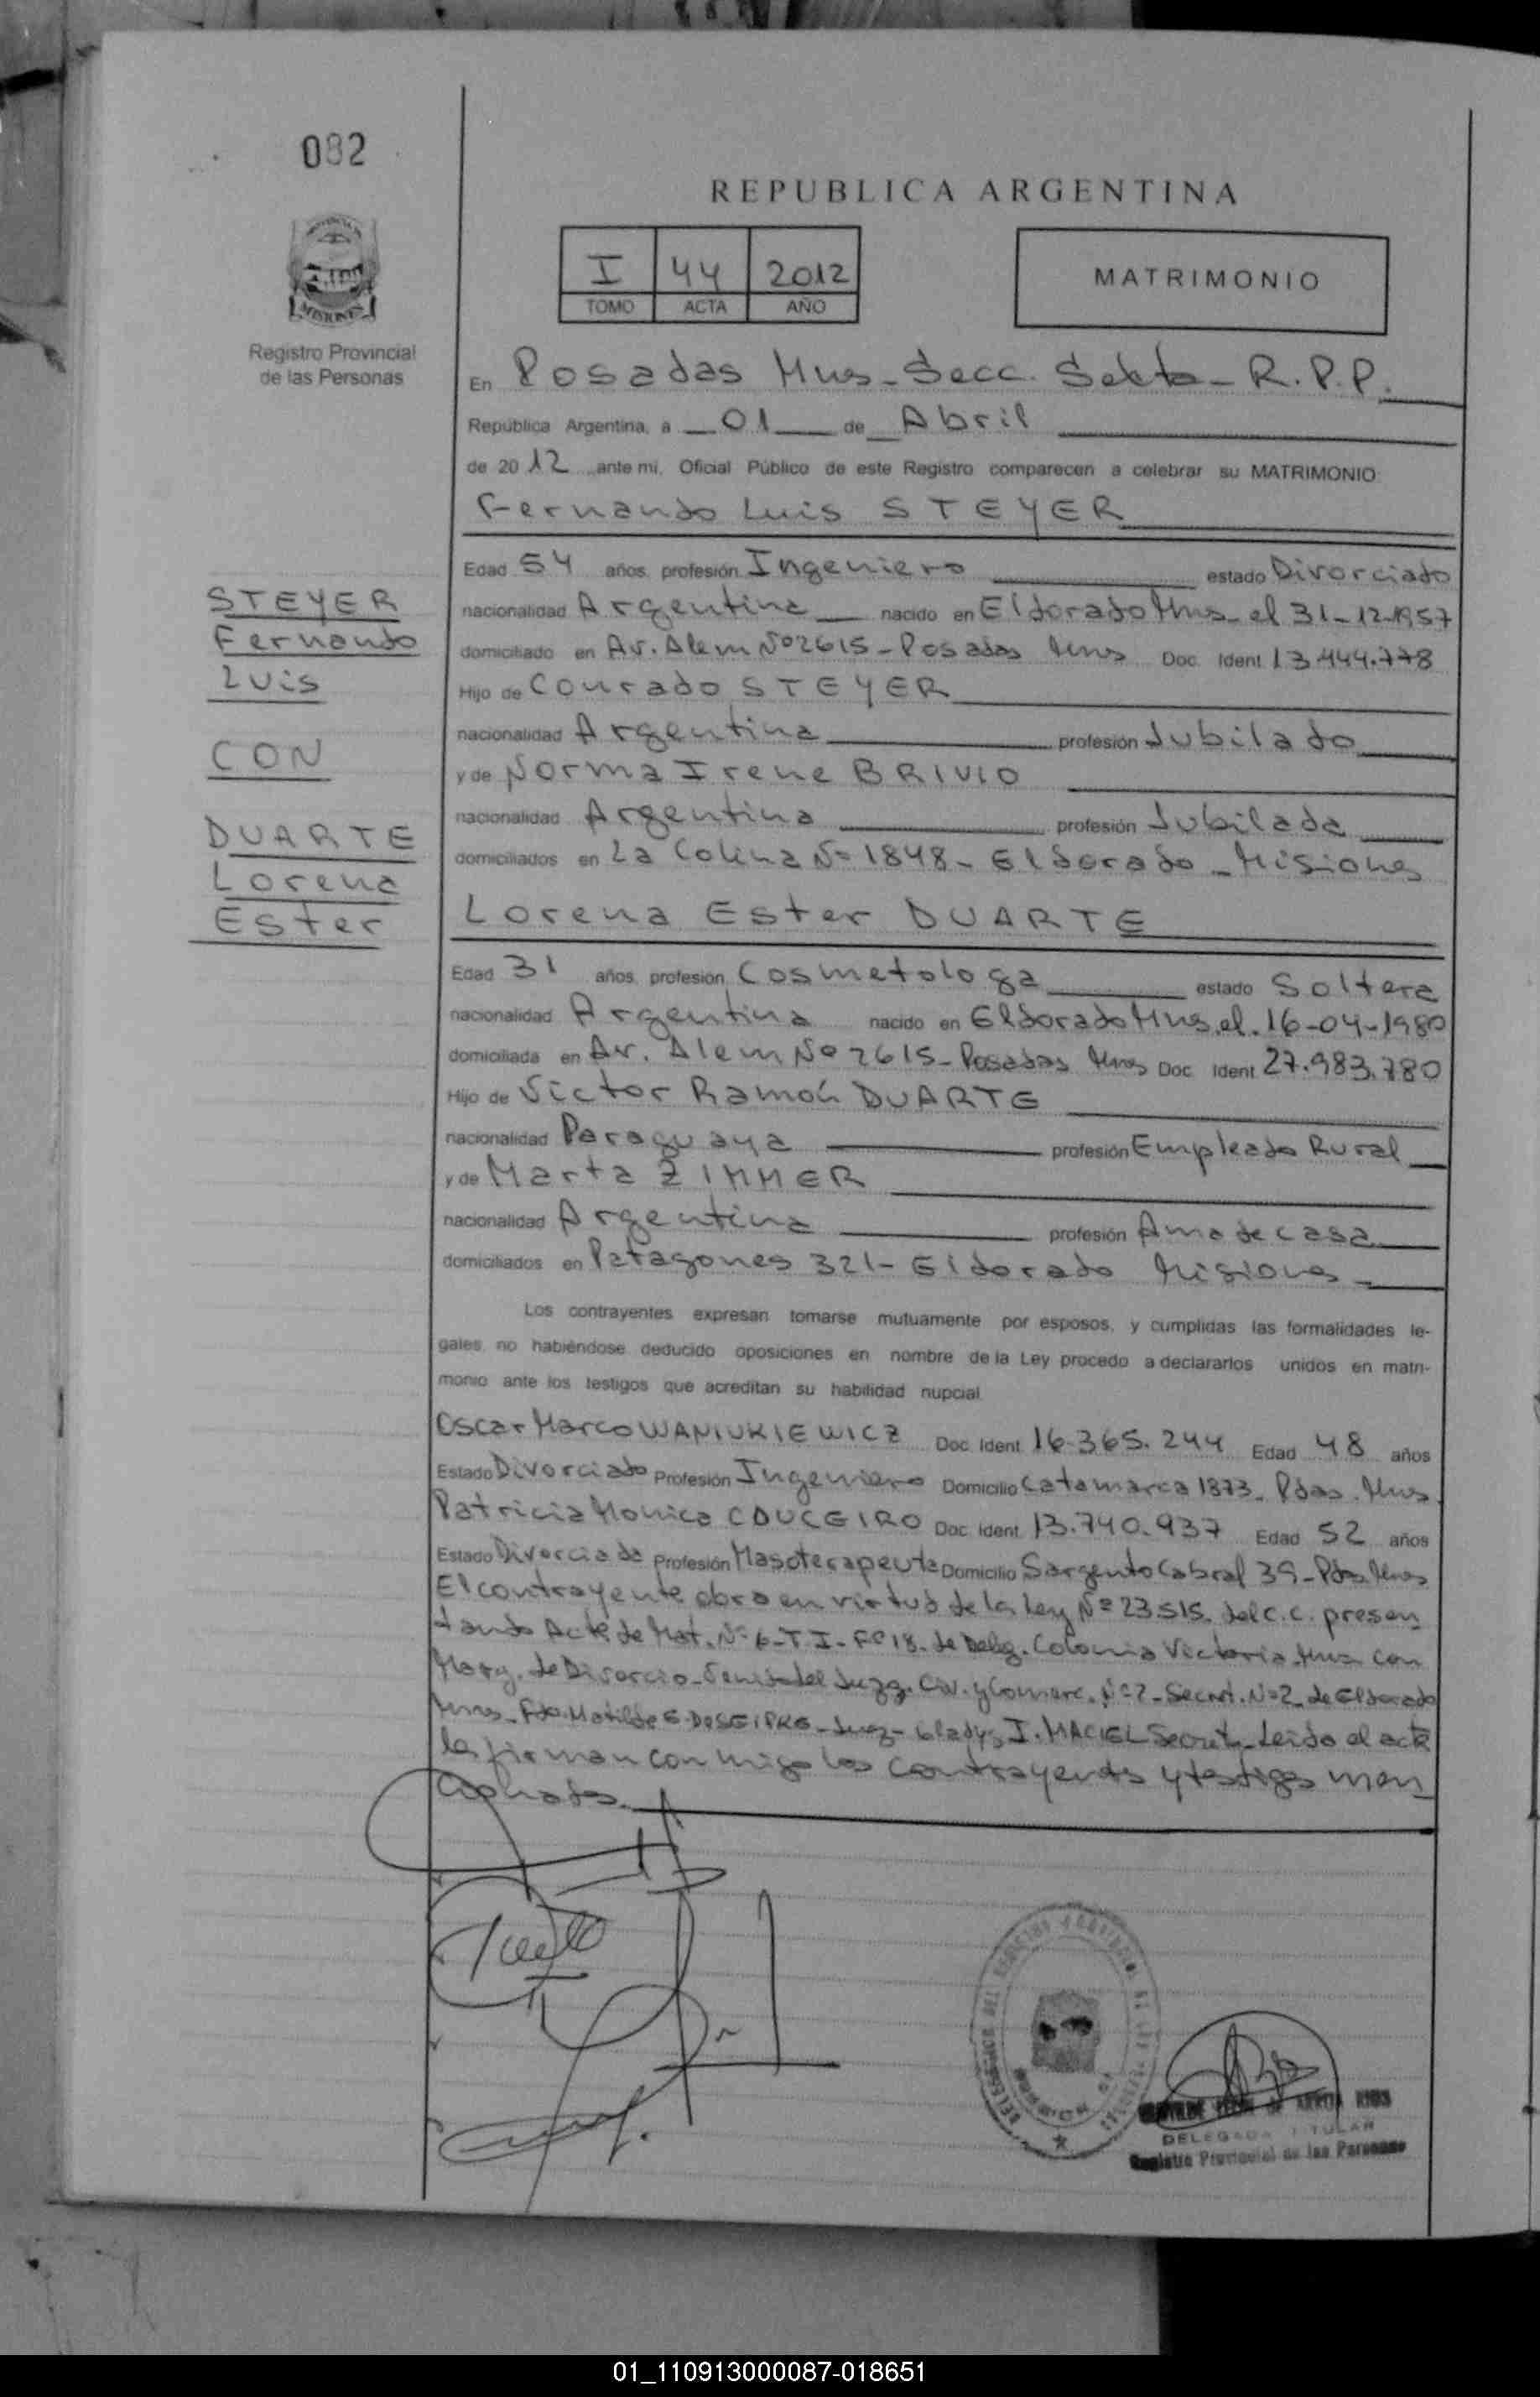 082
REPUBLICA ARGENTINA
I 44 2012
TOMO ACTA AÑO
MATRIMONIO
MISIONES
Registro Provincial
de las Personas
En Posadas Mns - Secc. Sexta - R.P.P.
República Argentina, a 01 de Abril
de 2012 ante mi, Oficial Público de este Registro comparecen a celebrar su MATRIMONIO
Fernando Luis STEYER
Edad 54 años, profesión Ingeniero estado Divorciado
nacionalidad Argentina nacido en Eldorado Mns - el 31-12-1957
domiciliado en Av. Alem Nº 2615 - Posadas Mnes Doc. Ident. 13.444.778
Hijo de Conrado STEYER
nacionalidad Argentina profesión Jubilado
y de Norma Irene BRIVIO
nacionalidad Argentina profesión Jubilada
domiciliados en La Colina Nº 1848 - Eldorado - Misiones
STEYER
Fernando
Luis
CON
DUARTE
Lorena
Ester
Lorena Ester DUARTE
Edad 31 años, profesión Cosmetologa estado Soltera
nacionalidad Argentina nacido en Eldorado Mns, el 16-04-1980
domiciliada en Av. Alem Nº 2615 - Posadas Mnes Doc. Ident. 27.983.780
Hijo de Victor Ramón DUARTE
nacionalidad Paraguaya profesión Empleado Rural
y de Marta ZIMMER
nacionalidad Argentina profesión Ama de casa
domiciliados en Patagones 321 - Eldorado Misiones -
Los contrayentes expresan tomarse mutuamente por esposos, y cumplidas las formalidades le-
gales no habiéndose deducido oposiciones en nombre de la Ley procedo a declararlos unidos en matri-
monio ante los testigos que acreditan su habilidad nupcial
Oscar Marco WANIUKIEWICZ Doc. Ident. 16.365.244 Edad 48 años
Estado Divorciado Profesión Ingeniero Domicilio Catamarca 1873 - Pdas. Mns.
Patricia Monica COUCEIRO Doc. Ident. 13.740.937 Edad 52 años
Estado Divorciada Profesión Masoterapeuta Domicilio Sargento Cabral 39 - Pdas. Mnes
El contrayente obra en virtud de la Ley Nº 23.515. del C.C. presen
tando Acta de Mat. Nº 6 - T I - Fº 18 - de Deleg. Colonia Victoria Mns con
Marg. de Divorcio - del Juzg. Civ. y Comerc. Nº 2 - Secret. Nº 2 de Eldorado
Mnes - Fdo. Matilde E. - Juez - Gladys I. MACIEL Secret. - Leida el acta
la firman conmigo los contrayentes y testigos men
cionados.
DELEGADA TITULAR
Registro Provincial de las Personas
01_110913000087-018651